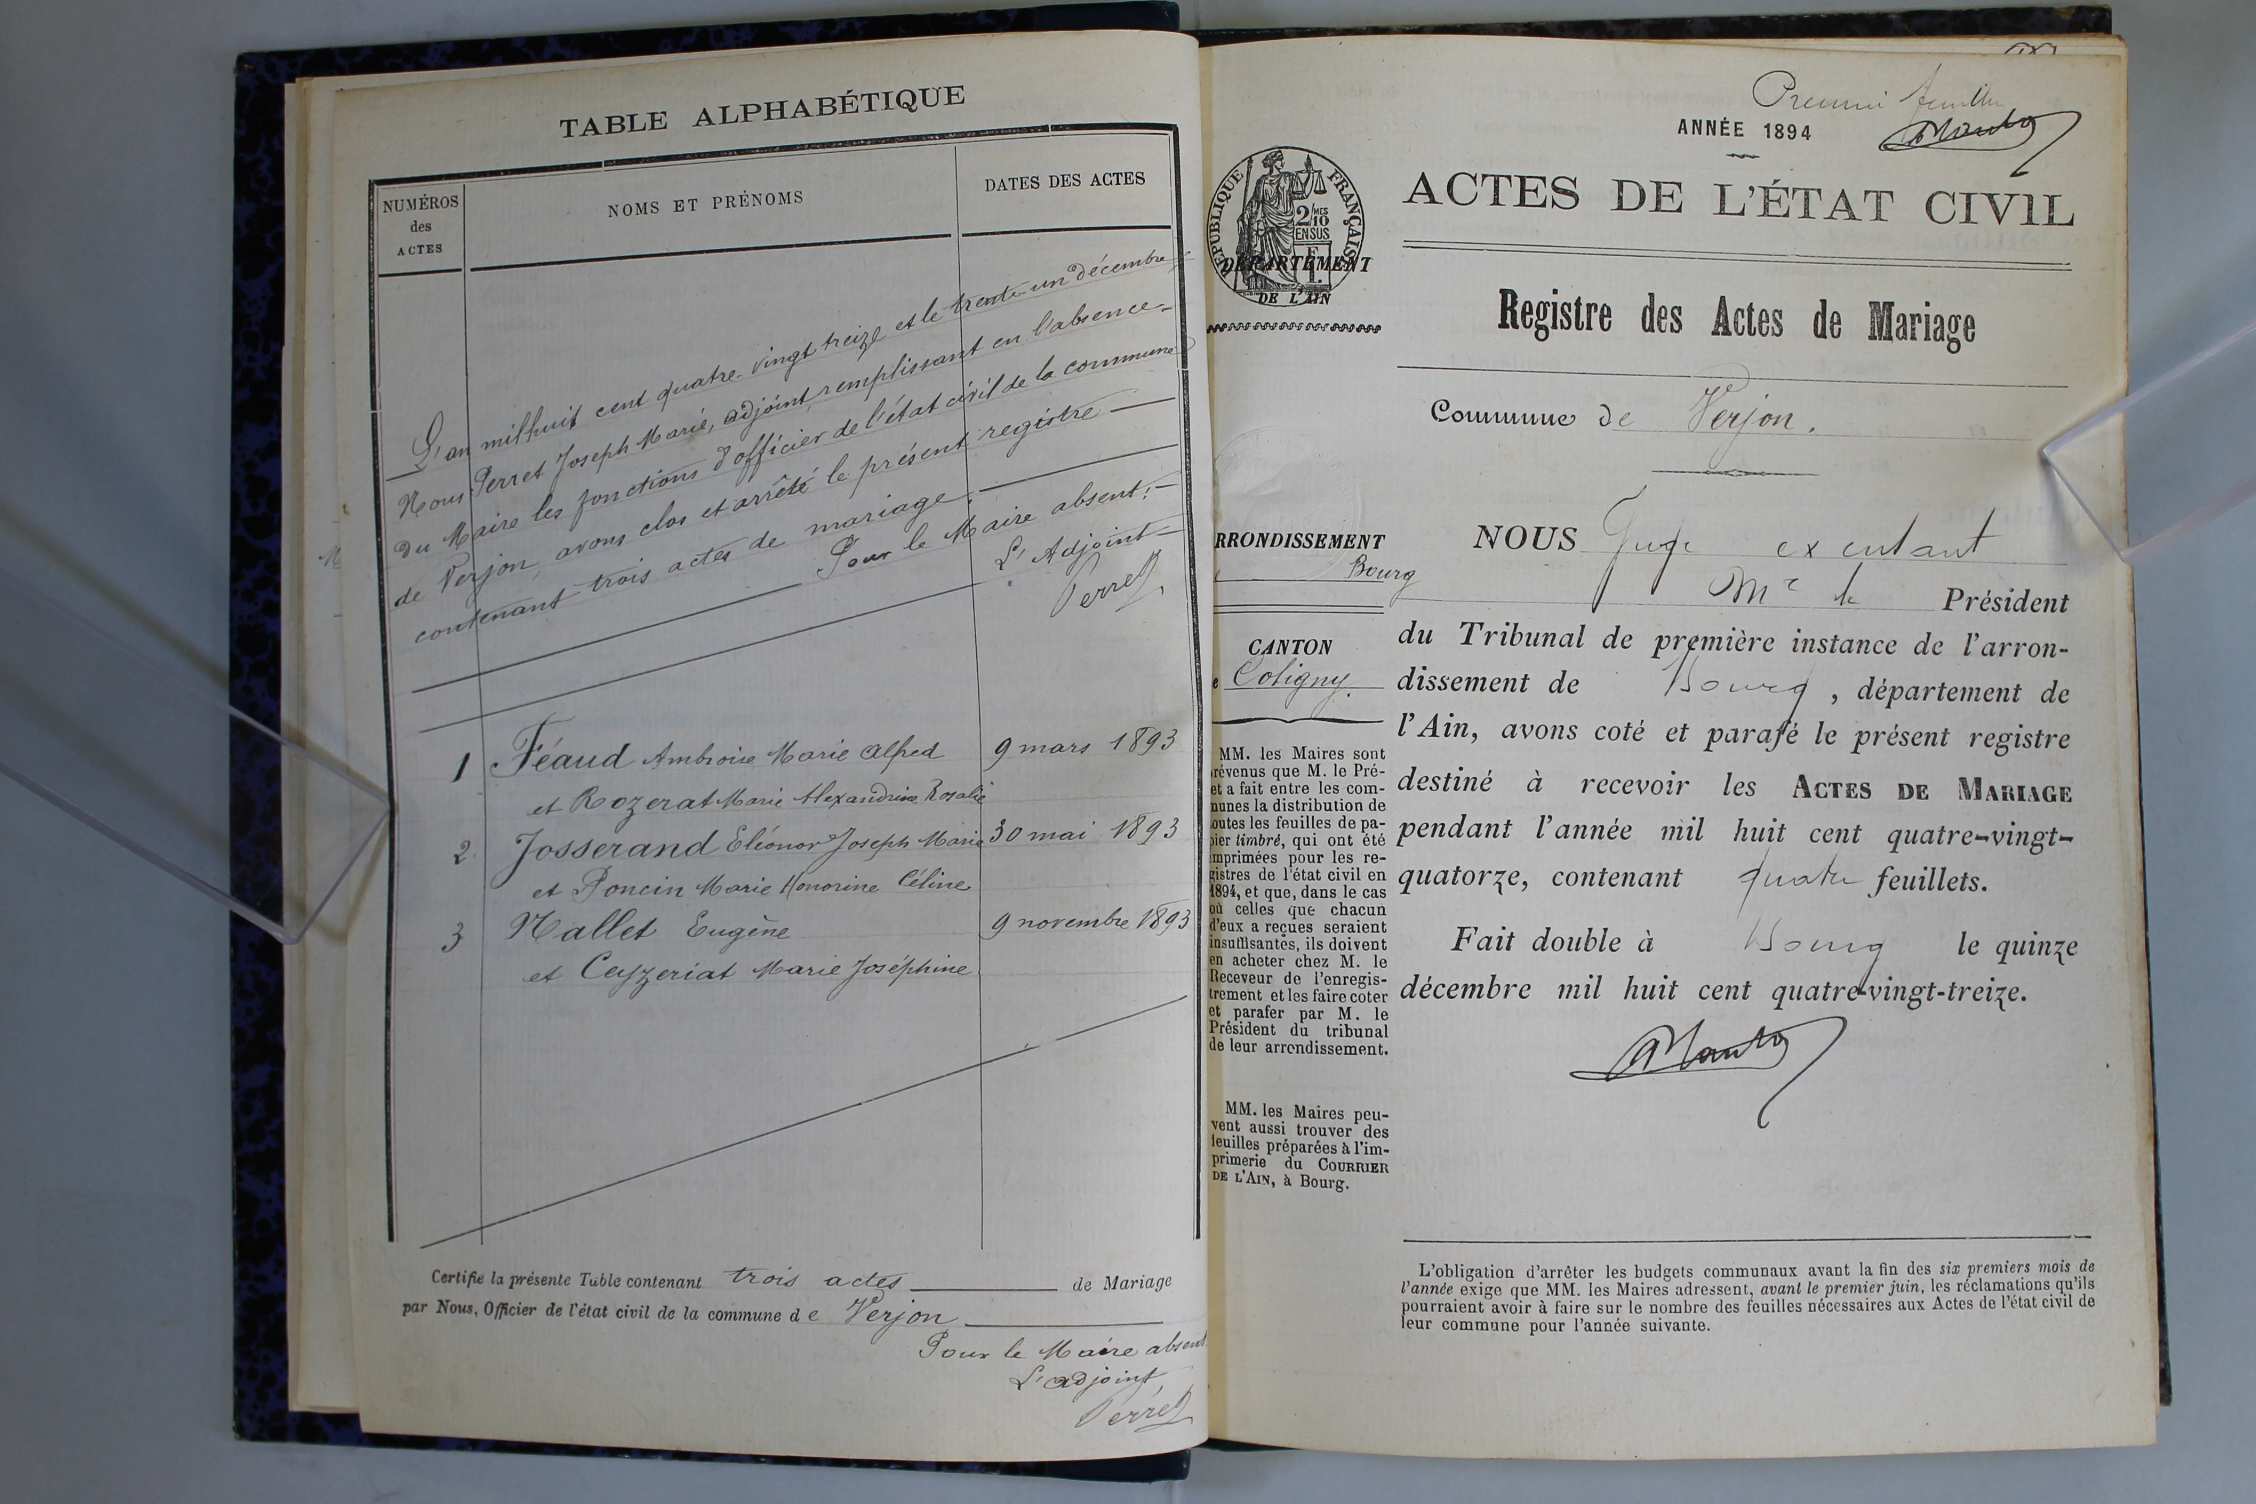 TABLE ALPHABÉTIQUE
NUMÉROS
des
ACTES
NOMS ET PRÉNOMS
DATES DES ACTES
L'an mil huit cent quatre-vingt treize et le trente-un décembre
Nous Perret Joseph Marie, adjoint, remplissant en l'absence
du Maire les fonctions d'officier de l'état civil de la commune
de Verjon, avons clos et arrêté le présent registre
contenant trois actes de mariage.
Pour le Maire absent:
L'Adjoint
Perret
1 Féaud Ambroise Marie Alfred 9 mars 1893
et Rozerat Marie Alexandrine Rosalie
2 Josserand Eléonor Joseph Marie 30 mai 1893
et Poncin Marie Honorine Céline
3 Nallet Eugène 9 novembre 1893
et Ceyzeriat Marie Joséphine
Certifie la présente Table contenant trois actes de Mariage
par Nous, Officier de l'état civil de la commune de Verjon
Pour le Maire absent
L'adjoint,
Perret
Premier feuillet
ANNÉE 1894
RÉPUBLIQUE FRANÇAISE
2/10
MES
EN SUS
ACTES DE L'ÉTAT CIVIL
DÉPARTEMENT
DE L'AIN
Registre des Actes de Mariage
Commune de Verjon.
RRONDISSEMENT
Bourg
CANTON
e Coligny.
MM. les Maires sont
révenus que M. le Pré-
et a fait entre les com-
munes la distribution de
outes les feuilles de pa-
pier timbré, qui ont été
imprimées pour les re-
gistres de l'état civil en
1894, et que, dans le cas
où celles que chacun
d'eux a reçues seraient
insuffisantes, ils doivent
en acheter chez M. le
Receveur de l'enregis-
trement et les faire coter
et parafer par M. le
Président du tribunal
de leur arrondissement.
MM. les Maires peu-
vent aussi trouver des
feuilles préparées à l'im-
primerie du COURRIER
DE L'AIN, à Bourg.
NOUS Juge
Mr le Président
du Tribunal de première instance de l'arron-
dissement de Bourg, département de
l'Ain, avons coté et parafé le présent registre
destiné à recevoir les ACTES DE MARIAGE
pendant l'année mil huit cent quatre-vingt-
quatorze, contenant quatre feuillets.
Fait double à Bourg le quinze
décembre mil huit cent quatre-vingt-treize.
L'obligation d'arrêter les budgets communaux avant la fin des six premiers mois de
l'année exige que MM. les Maires adressent, avant le premier juin, les réclamations qu'ils
pourraient avoir à faire sur le nombre des feuilles nécessaires aux Actes de l'état civil de
leur commune pour l'année suivante.